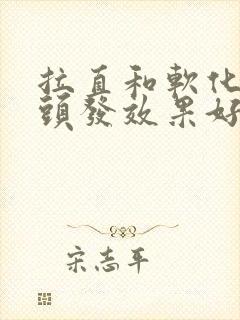 拉直和軟化
頭發效果好
宋志平